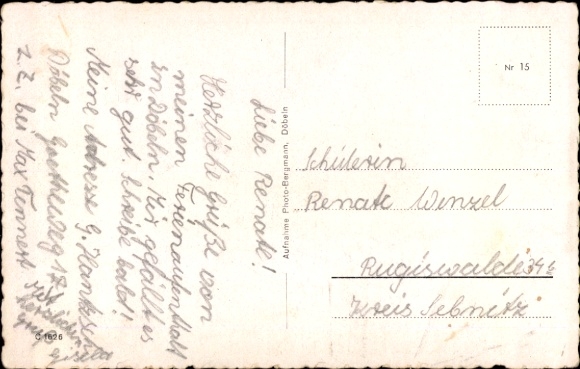 Liebe Renate!
Herzliche Grüße von
meinen Ferienaufenthalt
in Döbeln. Mir gefällt es
sehr gut. Schreibe bald!
Meine Adresse G. Hanksch
Döbeln Goetheweg 17
z. Z. bei Max Tennert
Gisela
Aufnahme Photo-Bergmann, Döbeln
Nr 15
Schülerin
Renate Wenzel
Rugiswalde 34
Kreis Sebnitz
C 1626